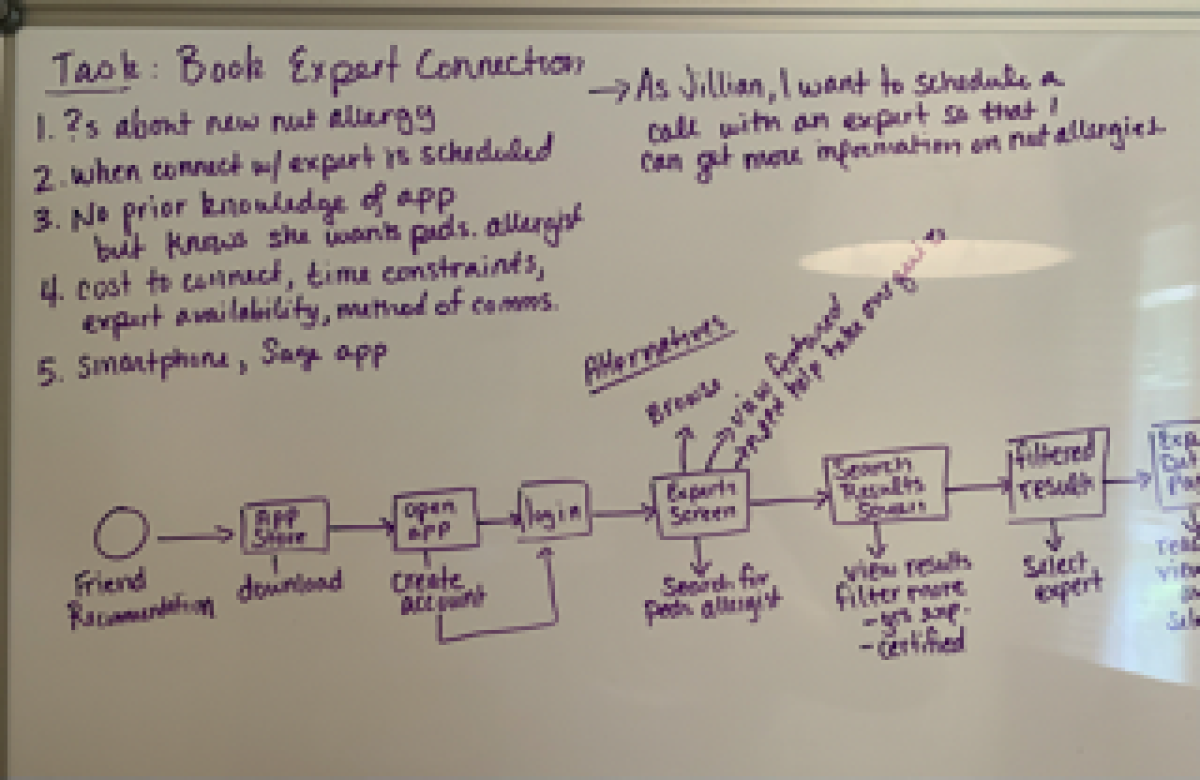 Task: Book Expert Connection
1. ?s about new nut allergy
2. When connect w/ expert is scheduled
3. No prior knowledge of app
but knows she wants peds. allergist
4. Cost to connect, time constraints,
expert availability, method of comms.
5. Smartphone, Sage app
→ As Jillian, I want to schedule a
call with an expert so that I
can get more information on nut allergies
Alternatives
Browse
view featured
help take over
Friend
Recommentation
App
Store
download
open
app
Create
account
login
Experts
Screen
Search for
Peds. allergist
Search
Results
Screen
view results
filter more
- yrs exp.
- certified
filtered
result
Select
expert
view